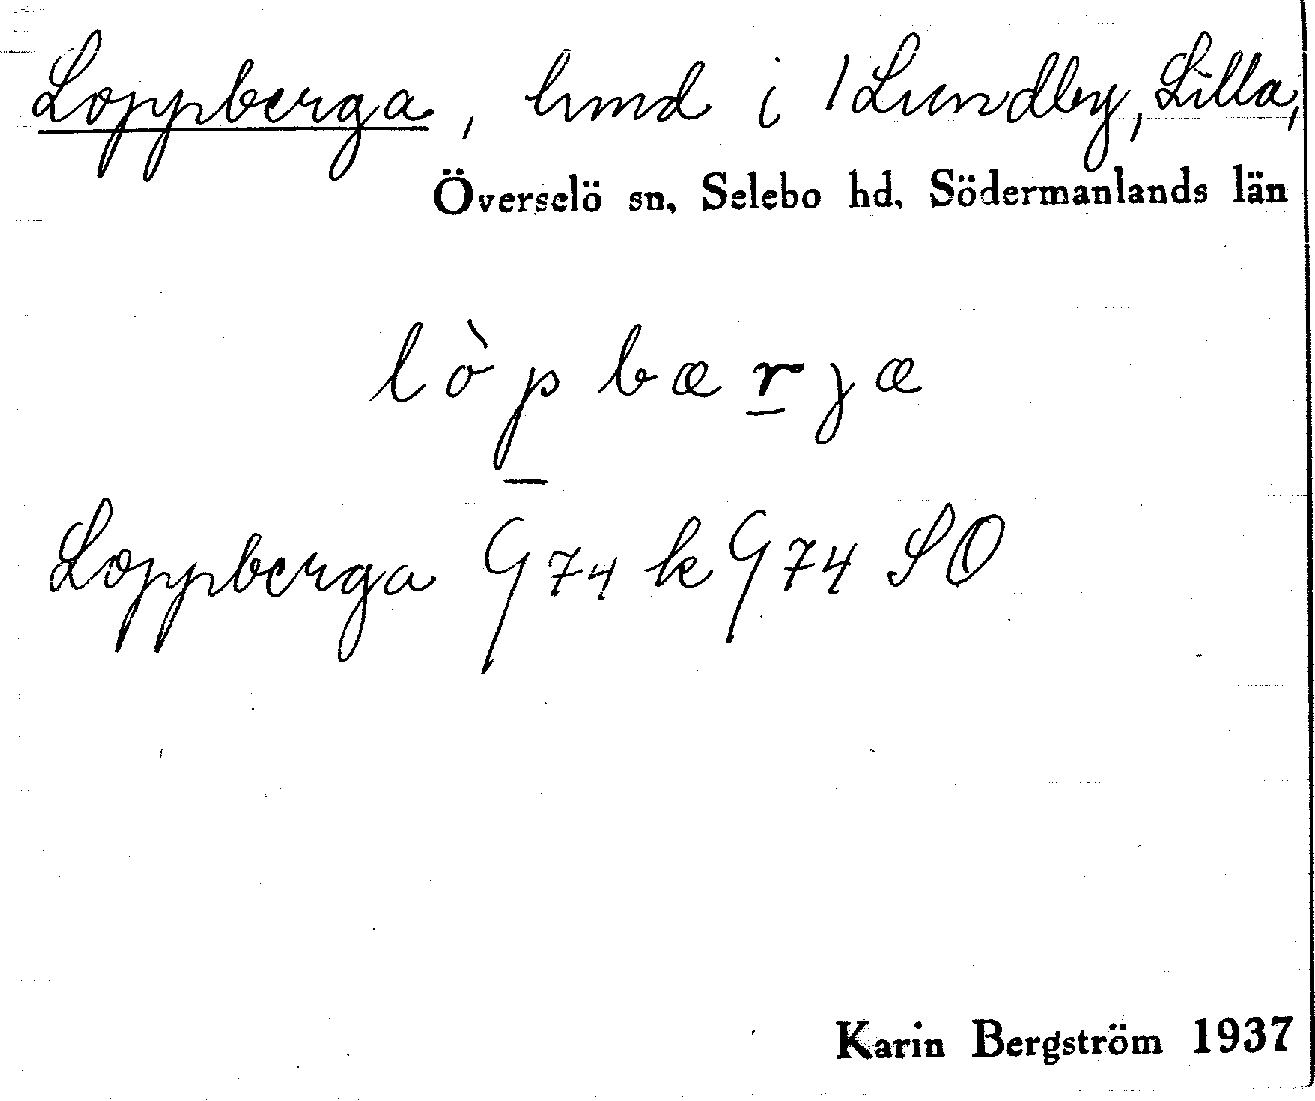 Loppberga, hmd i 1 Lundby, Lilla,
Överselö sn, Selebo hd, Södermanlands län
lòpbærjæ
Loppberga G74 k G74 SO
Karin Bergström 1937